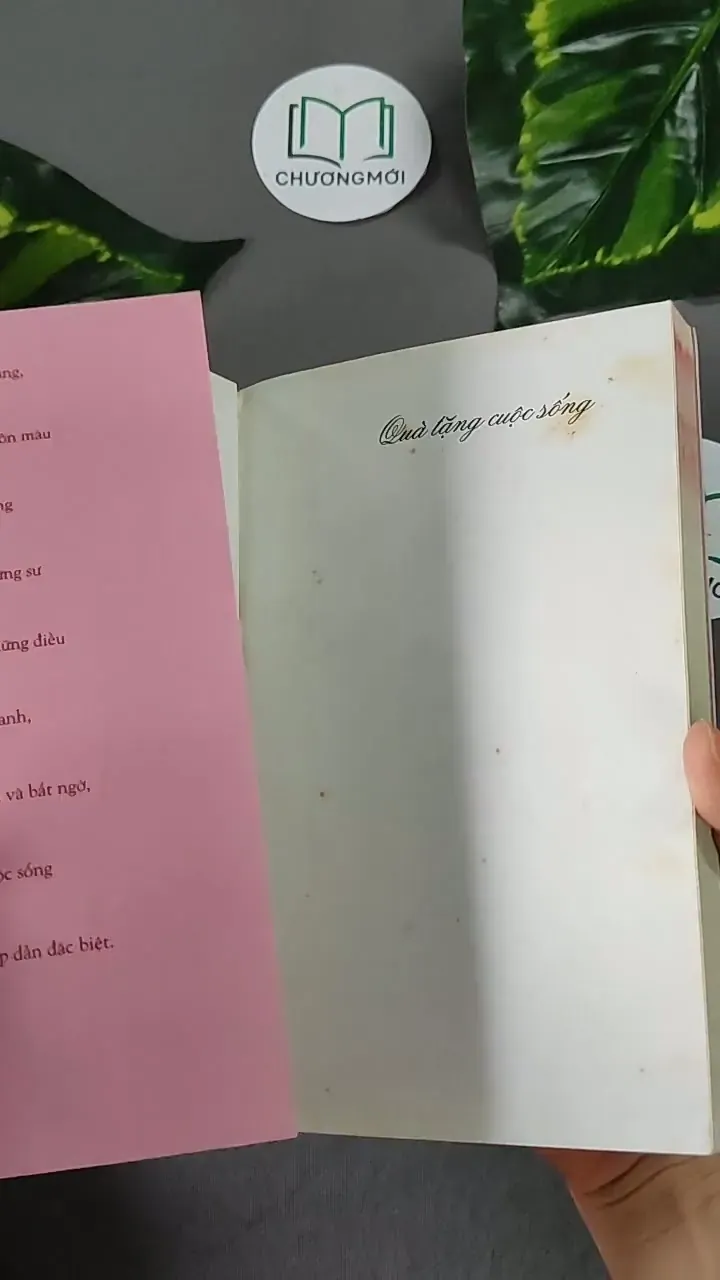 CHƯƠNGMỚI
ang,
ôn màu
ng
ững sư
ững điều
anh,
và bất ngờ,
ộc sống
p dẫn đặc biệt.
Quà tặng cuộc sống